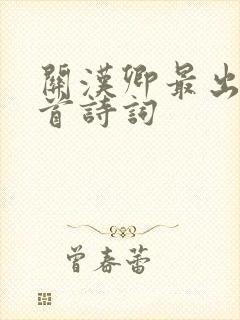 關漢卿最出
首詩詞
曾春蕾